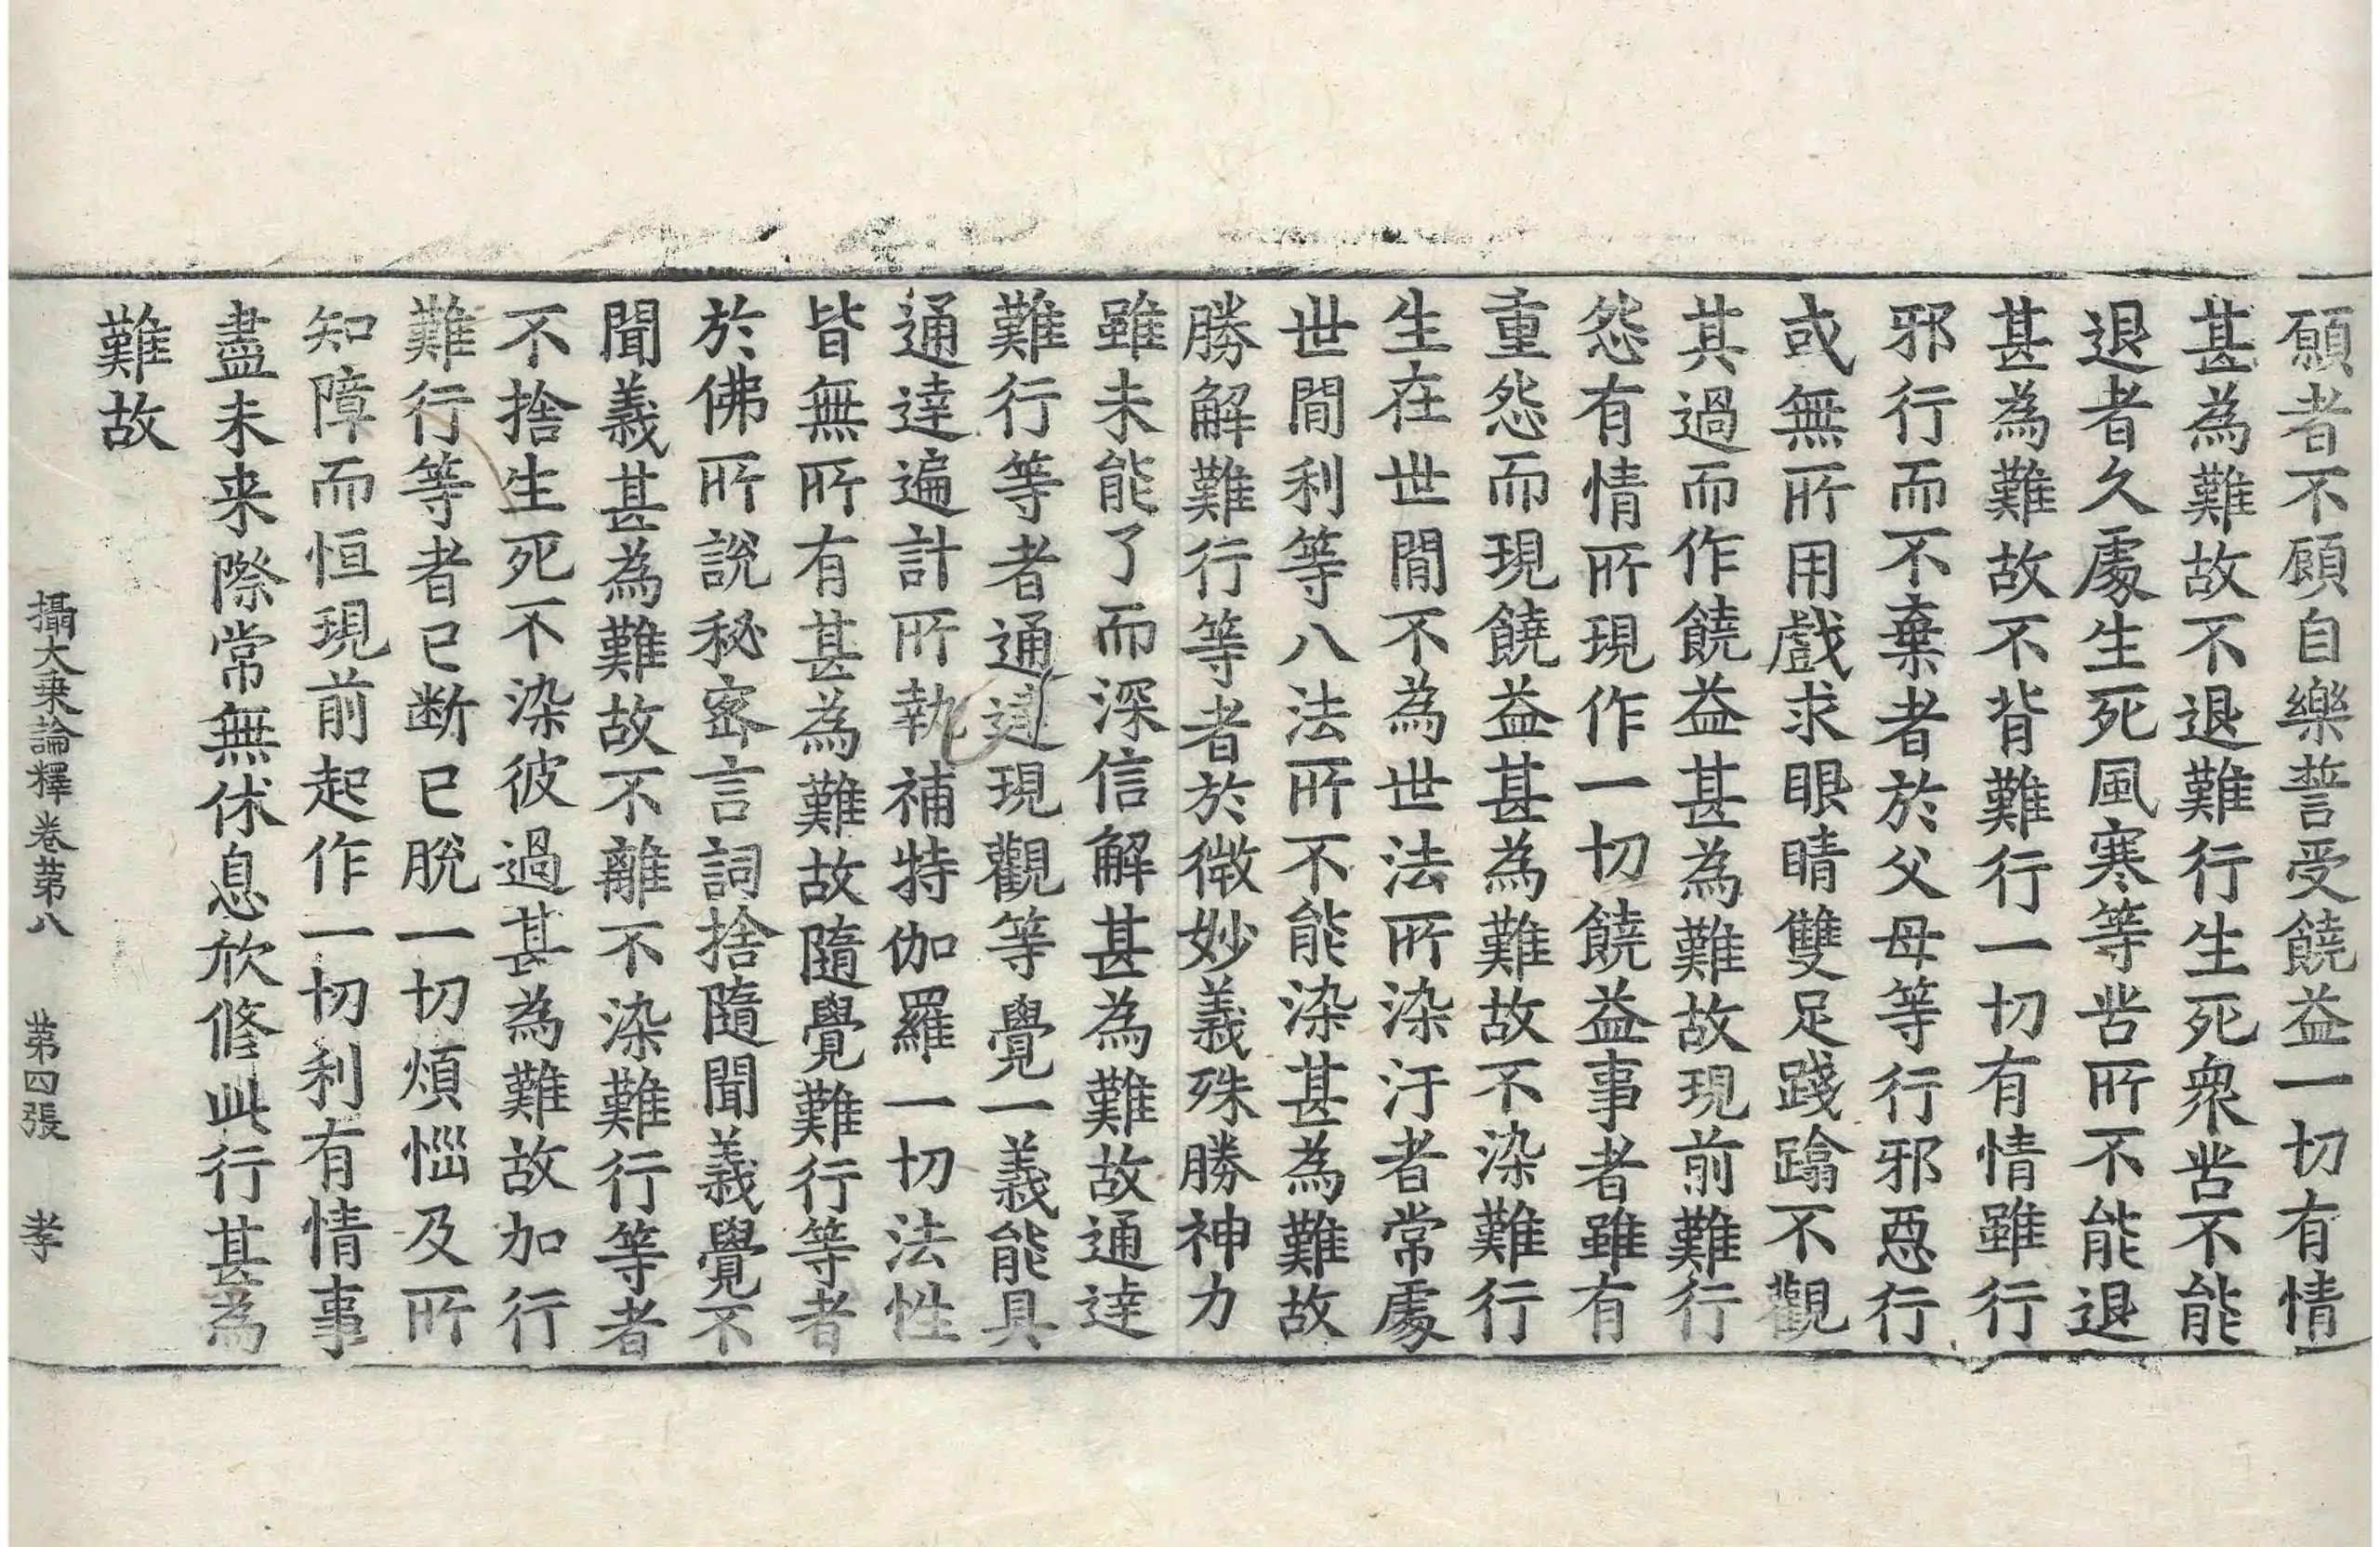 願者不顧自樂誓受饒益一切有情
甚為難故不退難行生死衆苦不能
退者久處生死風寒等苦所不能退
甚為難故不背難行一切有情雖行
邪行而不棄者於父母等行邪惡行
或無所用戲求眼睛雙足踐蹹不觀
其過而作饒益甚為難故現前難行
怨有情所現作一切饒益事者雖有
重怨而現饒益甚為難故不染難行
生在世閒不為世法所染汙者常處
世閒利等八法所不能染甚為難故
勝解難行等者於微妙義殊勝神力
雖未能了而深信解甚為難故通達
難行等者通達現觀等覺一義能具
通達遍計所執補特伽羅一切法性
皆無所有甚為難故隨覺難行等者
於佛所說秘密言詞捨隨聞義覺不
聞義甚為難故不離不染難行等者
不捨生死不染彼過甚為難故加行
難行等者已断已脫一切煩惱及所
知障而恒現前起作一切利有情事
盡未来際常無休息欣修此行甚為
難故
攝大乗論釋卷第八 第四張 孝